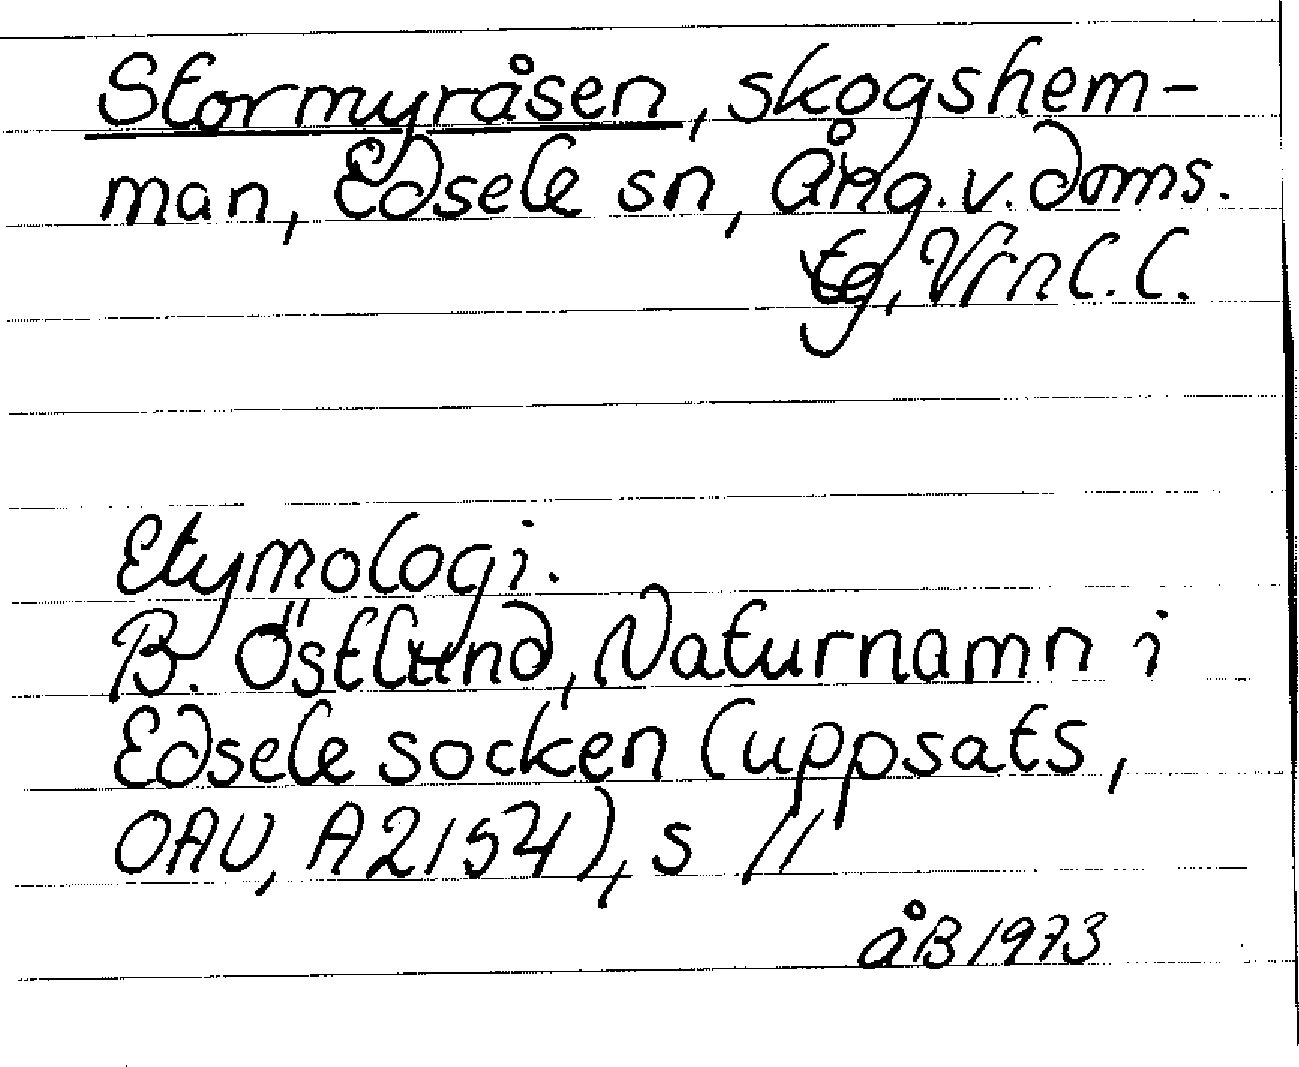 Stormyråsen, skogshem-
man, Edsele sn, Ång.v.doms.
tg, Vrnl.l.
Etymologi.
B. Östlund, Naturnamn i
Edsele socken (uppsats,
OAU, A2154), s 11
åB 1973